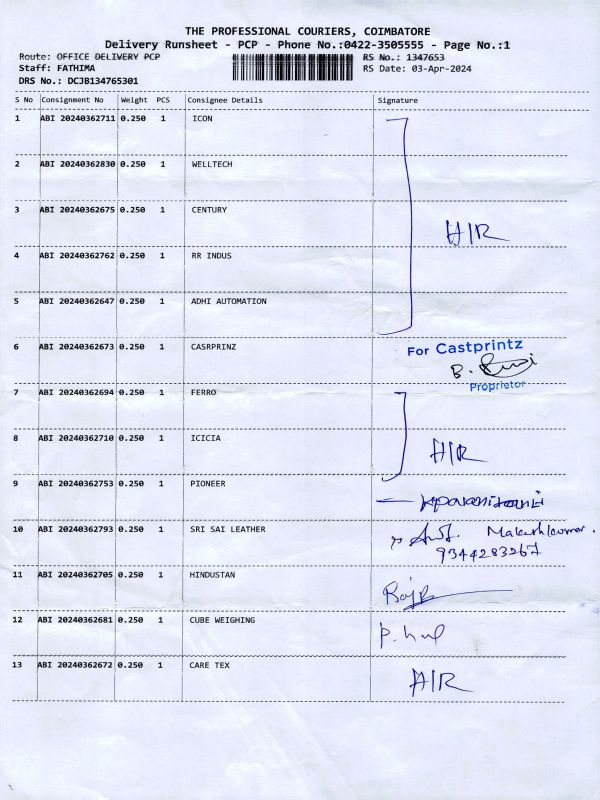 THE PROFESSIONAL COURIERS, COIMBATORE
Delivery Runsheet - PCP - Phone No.:0422-3505555 - Page No.:1
Route: OFFICE DELIVERY PCP RS No.: 1347653
Staff: FATHIMA RS Date: 03-Apr-2024
DRS No.: DCJB134765301
S No Consignment No Weight PCS Consignee Details Signature
1 ABI 20240362711 0.250 1 ICON
2 ABI 20240362830 0.250 1 WELLTECH
3 ABI 20240362675 0.250 1 CENTURY
A/R
4 ABI 20240362762 0.250 1 RR INDUS
5 ABI 20240362647 0.250 1 ADHI AUTOMATION
6 ABI 20240362673 0.250 1 CASRPRINZ For Castprintz
B.
Proprietor
7 ABI 20240362694 0.250 1 FERRO
8 ABI 20240362710 0.250 1 ICICIA A/R
9 ABI 20240362753 0.250 1 PIONEER
10 ABI 20240362793 0.250 1 SRI SAI LEATHER
9344283267
11 ABI 20240362705 0.250 1 HINDUSTAN
12 ABI 20240362681 0.250 1 CUBE WEIGHING
13 ABI 20240362672 0.250 1 CARE TEX A/R